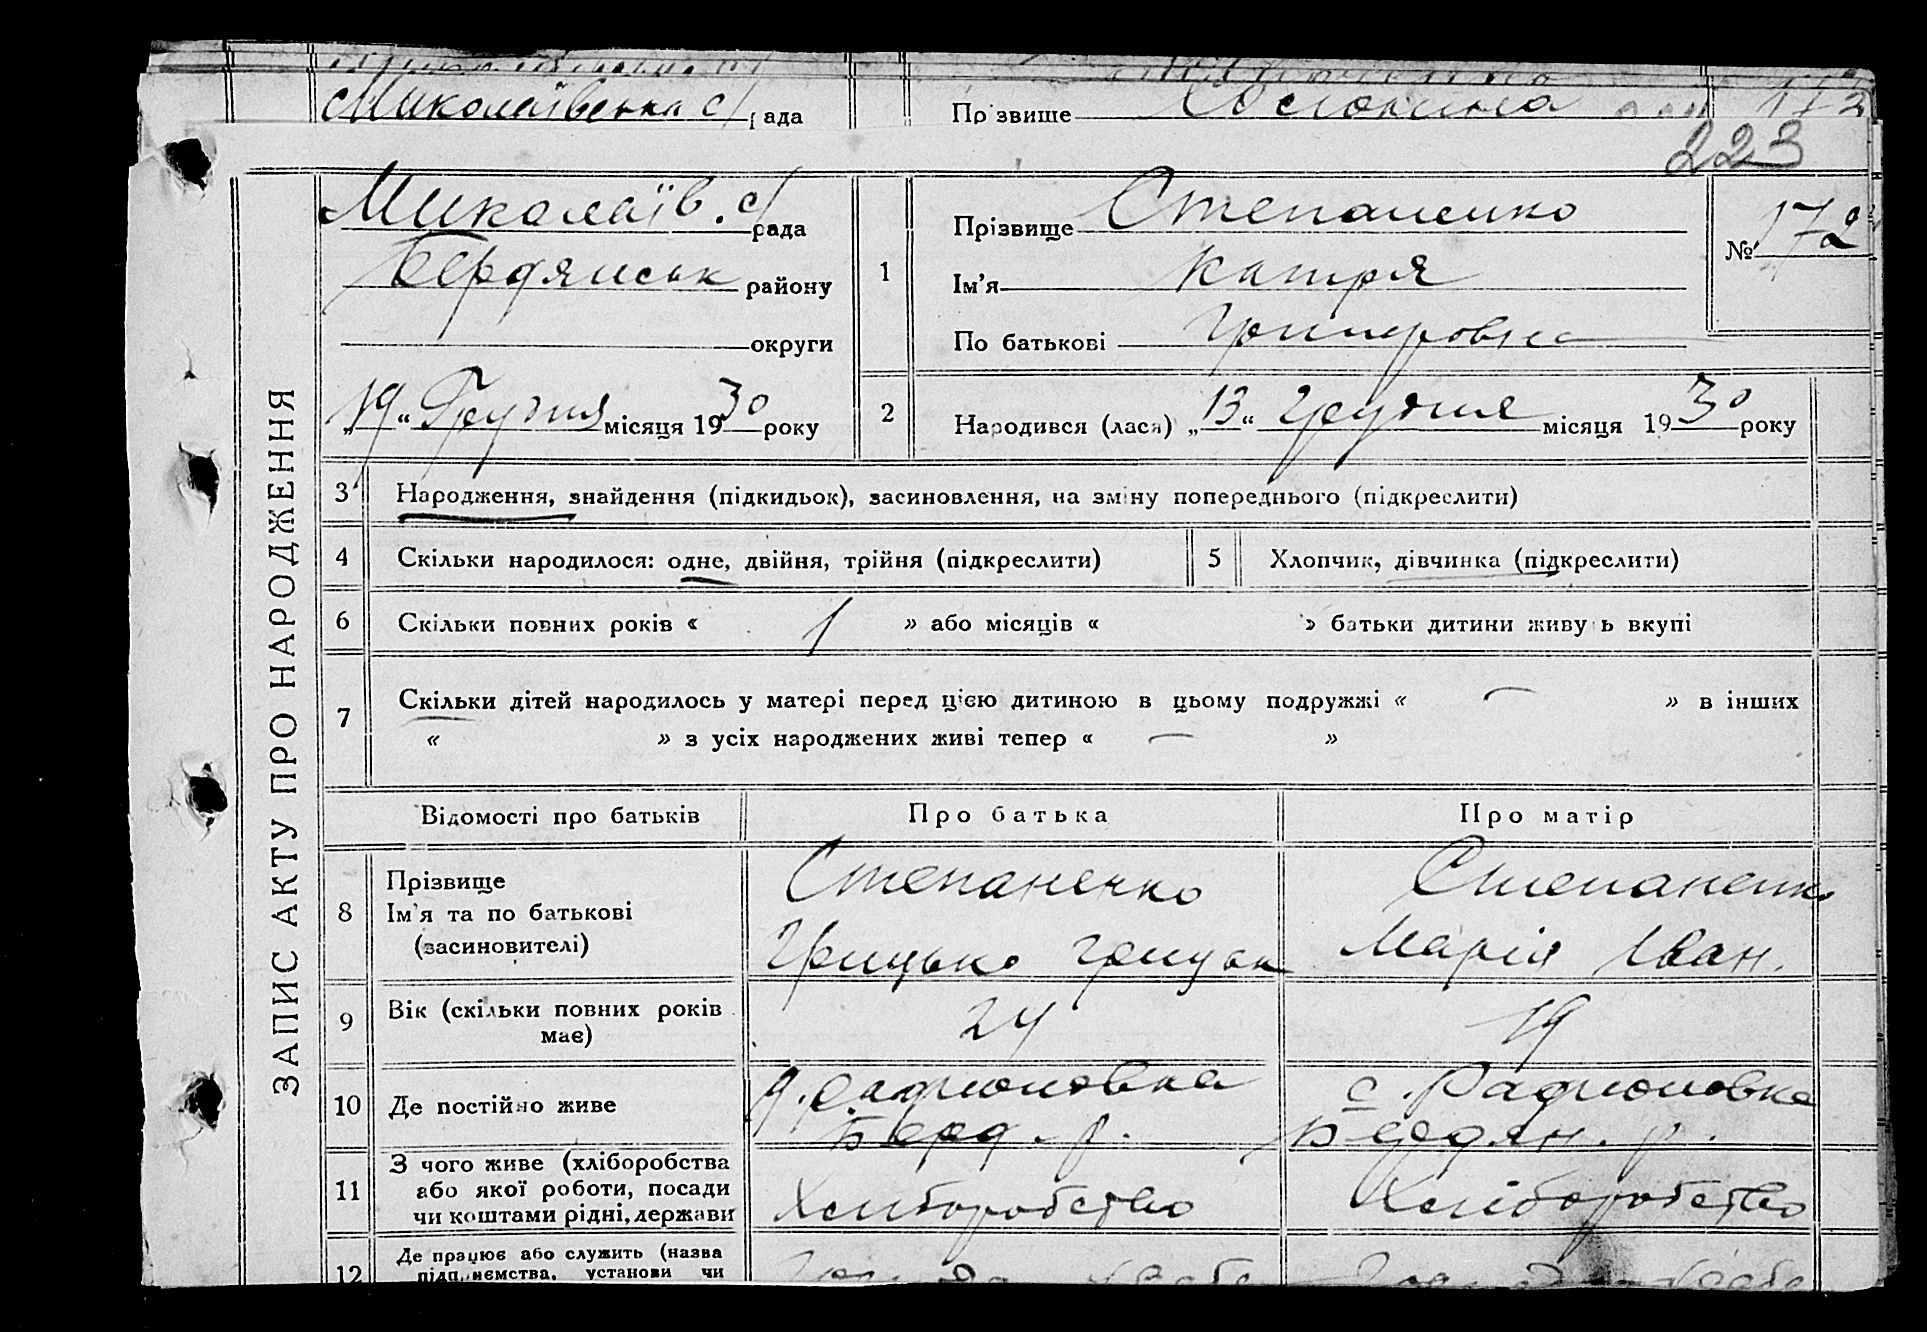 Миколаївська с/рада
Прізвище
172
223
ЗАПИС АКТУ ПРО НАРОДЖЕННЯ
Миколаїв. с/рада
Бердянськ району
округи
„19“ Грудня місяця 1930 року
1
Прізвище Степаненко
Ім'я Катря
По батькові
№ 172
2
Народився (лася) „13“ Грудня місяця 1930 року
3 Народження, знайдення (підкидьок), засиновлення, на зміну попереднього (підкреслити)
4 Скільки народилося: одне, двійня, трійня (підкреслити)
5 Хлопчик, дівчинка (підкреслити)
6 Скільки повних років « 1 » або місяців « » батьки дитини живуть вкупі
7 Скільки дітей народилось у матері перед цією дитиною в цьому подружжі « — » в інших
« » з усіх народжених живі тепер « — »
Відомості про батьків Про батька Про матір
8 Прізвище
Ім'я та по батькові
(засиновителі)
Степаненко
Грицько Грицьк
Степаненко
Марія Іван.
9 Вік (скільки повних років
має)
24
19
10 Де постійно живе
Радионовка
Берд. р.
с. Радионовка
Бердян. р.
11 З чого живе (хліборобства
або якої роботи, посади
чи коштами рідні, держави
Хліборобство
Хліборобство
12 Де працює або служить (назва
підприємства, установи чи